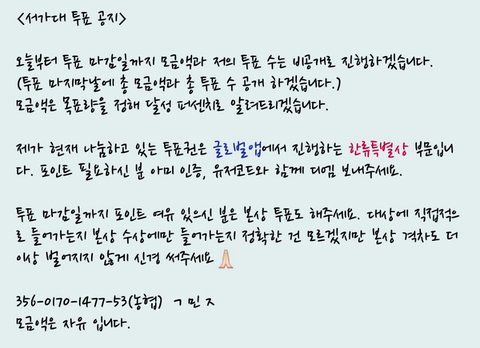 <서가대 투표 공지>
오늘부터 투표 마감일까지 모금액과 저의 투표 수는 비공개로 진행하겠습니다.
(투표 마지막날에 총 모금액과 총 투표 수 공개 하겠습니다.)
모금액은 목표량을 정해 달성 퍼센치로 알려드리겠습니다.
제가 현재 나눔하고 있는 투표권은 글로벌앱에서 진행하는 한류특별상 부문입니
다. 포인트 필요하신 분 아미 인증, 유저코드와 함께 디엠 보내주세요.
투표 마감일까지 포인트 여유 있으신 분은 본상 투표도 해주세요. 대상에 직접적으
로 들어가는지 본상 수상에만 들어가는지 정확한 건 모르겠지만 본상 격차도 더
이상 벌어지지 않게 신경 써주세요🙏🏻
356-0170-1477-53(농협) ㄱ 민 ㅈ
모금액은 자유 입니다.